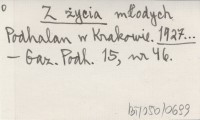 Z życia młodych
Podhalan w Krakowie. 1927...
– Gaz. Podh. 15, nr 46.
bj/250/0699